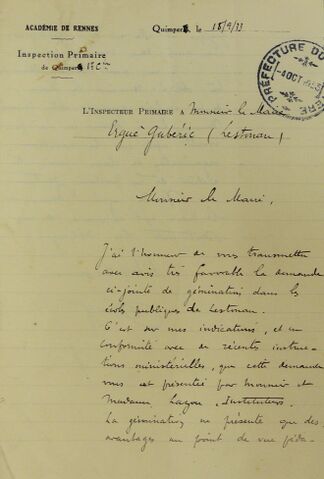 ACADÉMIE DE RENNES
Quimper, le 15/9/33
Inspection Primaire
de Quimper
PRÉFECTURE DU
-4 OCT
ERE
L'INSPECTEUR PRIMAIRE A Monsieur le Maire
Ergué-Gabéric (Lestonan)
Monsieur le Maire,
J'ai l'honneur de vous transmettre
avec avis très favorable la demande
ci-jointe de gémination dans les
écoles publiques de Lestonan.
C'est sur mes indications, et en
conformité avec de récentes instruc-
tions ministérielles, que cette demande
vous est présentée par Monsieur et
Madame Lazou, Instituteurs.
La gémination ne présente que des
avantages au point de vue péda-